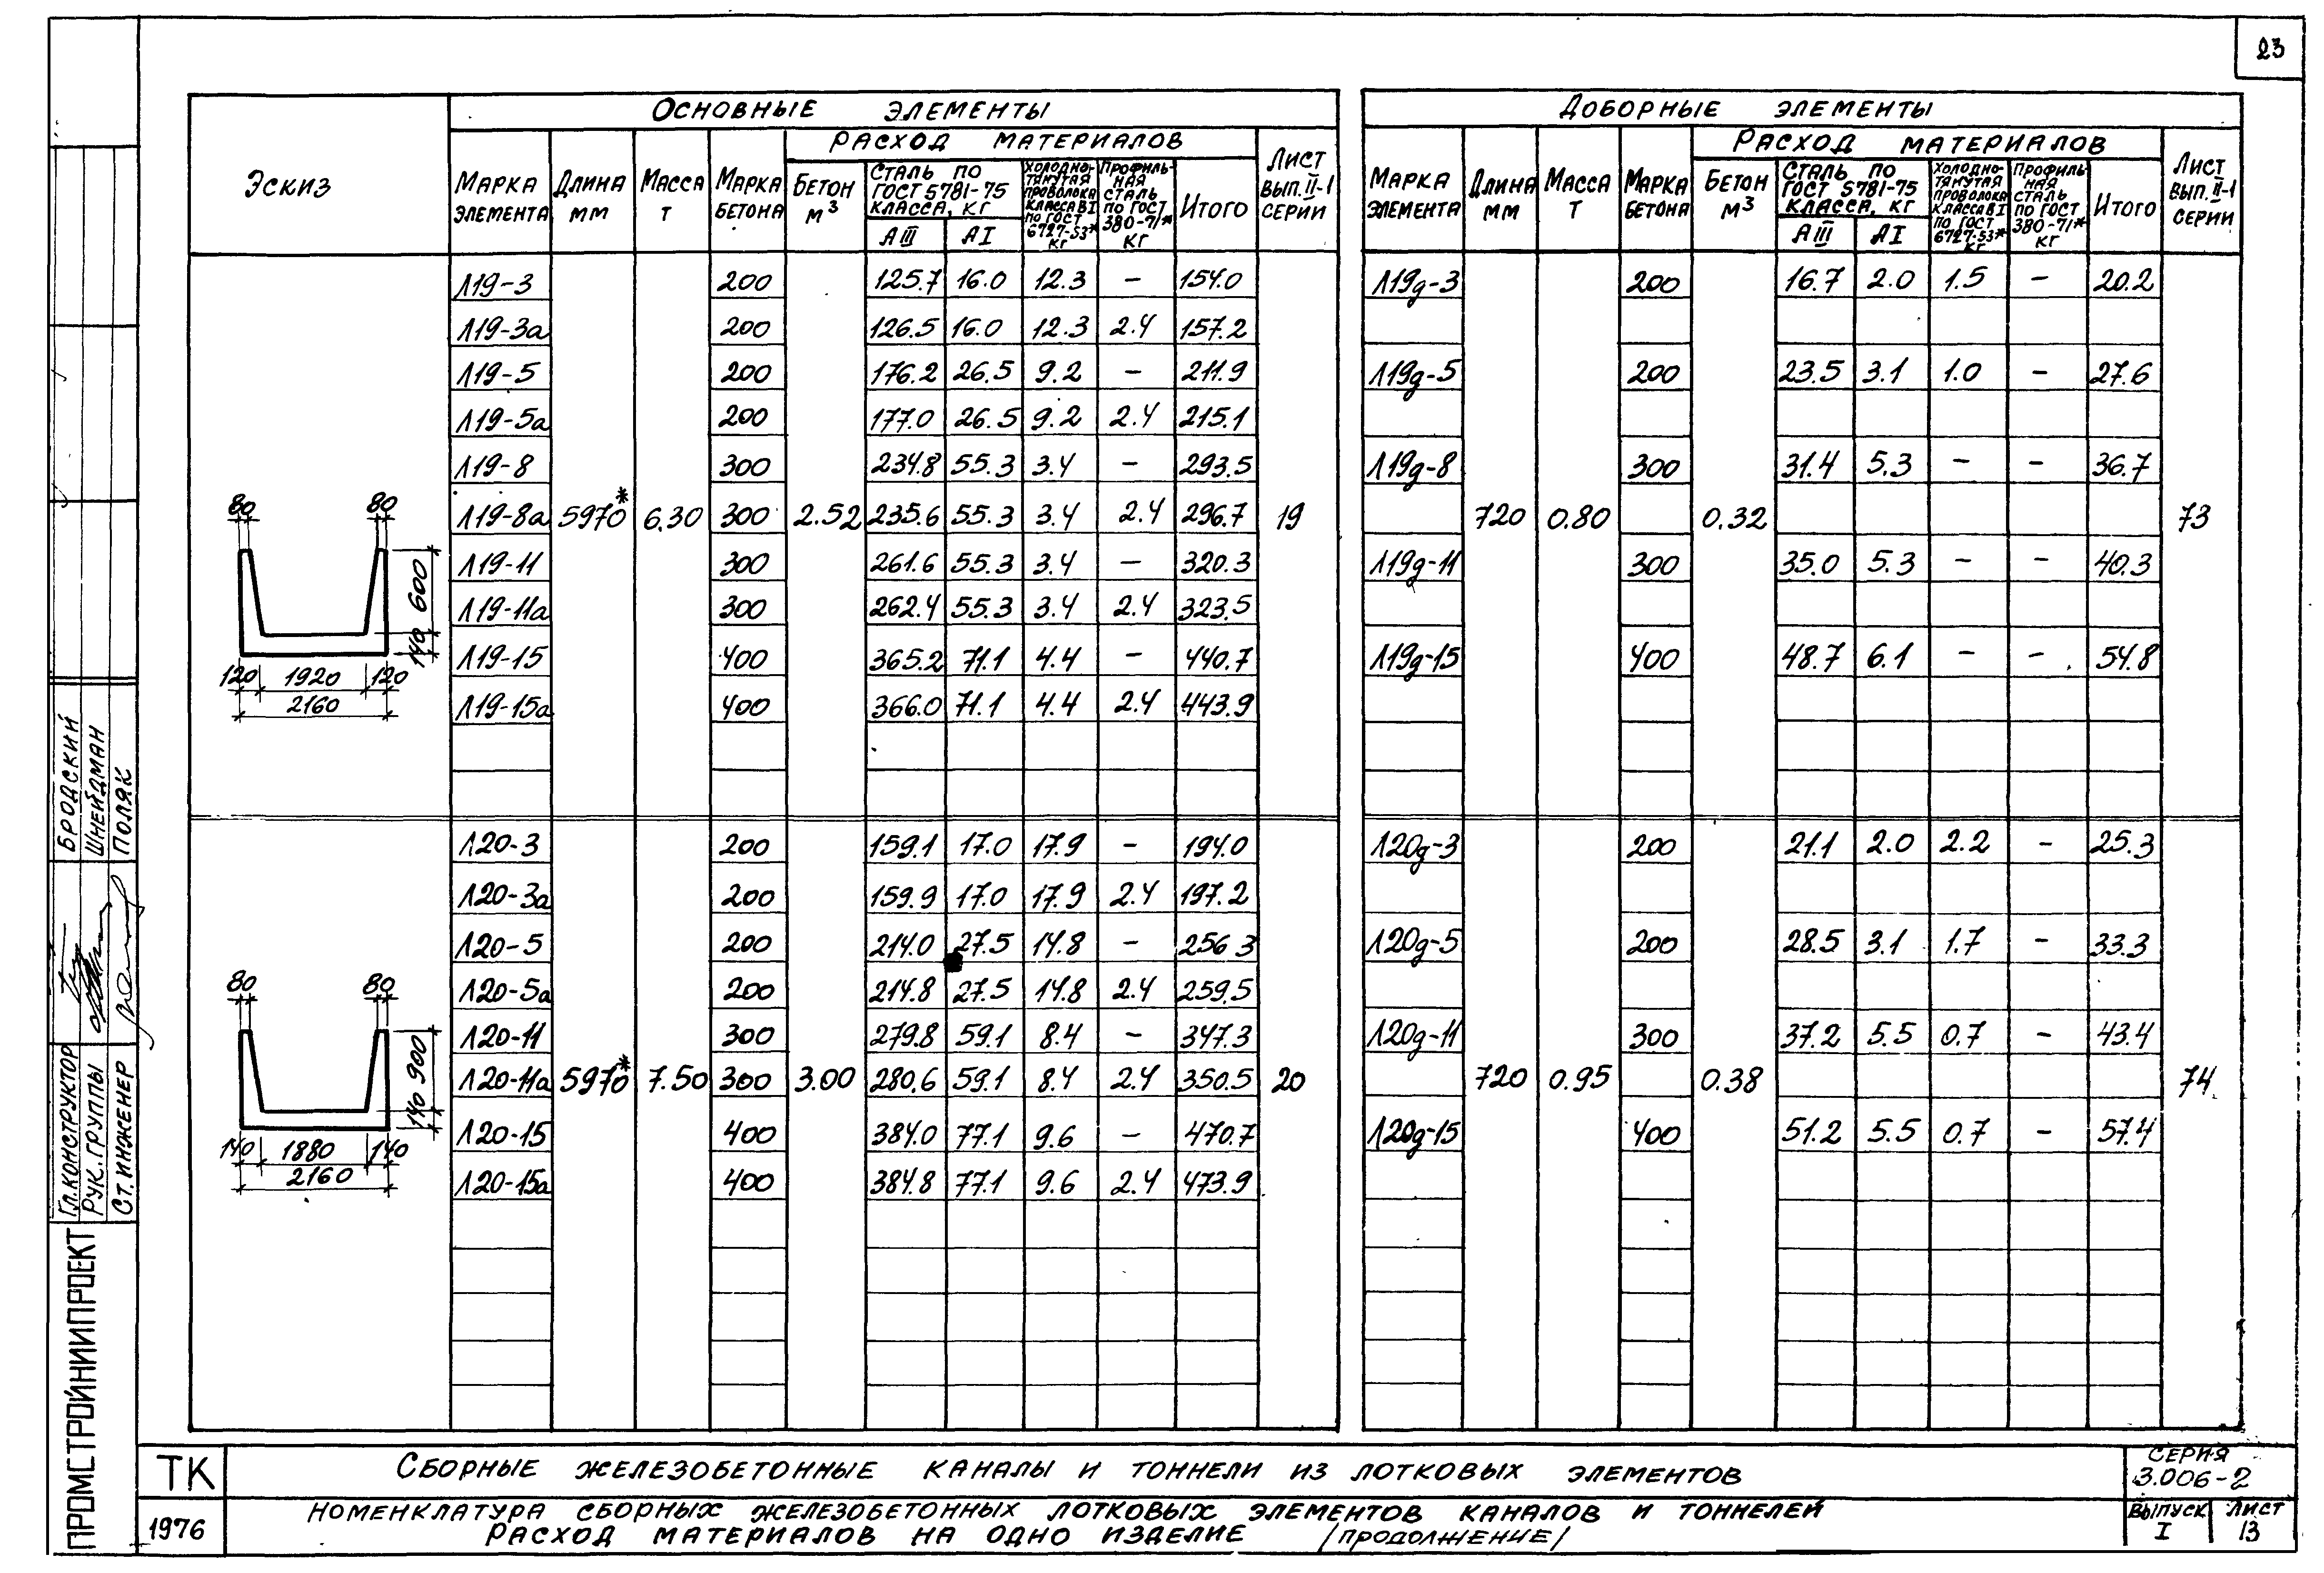 23
Эскиз
Основные элементы
Марка элемента
Длина мм
Масса т
Марка бетона
Расход материалов
Бетон м³
Сталь по ГОСТ 5781-75 класса, кг
АIII АI
Холоднотянутая проволока класса ВI по ГОСТ 6727-53* кг
Профильная сталь по ГОСТ 380-71* кг
Итого
Лист вып. II-1 серии
Доборные элементы
Марка элемента
Длина мм
Масса т
Марка бетона
Расход материалов
Бетон м³
Сталь по ГОСТ 5781-75 класса, кг
АIII АI
Холоднотянутая проволока класса ВI по ГОСТ 6727-53* кг
Профильная сталь по ГОСТ 380-71* кг
Итого
Лист вып. II-1 серии
Л19-3 200 125.7 16.0 12.3 – 154.0 Л19д-3 200 16.7 2.0 1.5 – 20.2
Л19-3а 200 126.5 16.0 12.3 2.4 157.2
Л19-5 200 176.2 26.5 9.2 – 211.9 Л19д-5 200 23.5 3.1 1.0 – 27.6
Л19-5а 200 177.0 26.5 9.2 2.4 215.1
Л19-8 300 234.8 55.3 3.4 – 293.5 Л19д-8 300 31.4 5.3 – – 36.7
Л19-8а 5970* 6.30 300 2.52 235.6 55.3 3.4 2.4 296.7 19 720 0.80 0.32 73
Л19-11 300 261.6 55.3 3.4 – 320.3 Л19д-11 300 35.0 5.3 – – 40.3
Л19-11а 300 262.4 55.3 3.4 2.4 323.5
Л19-15 400 365.2 71.1 4.4 – 440.7 Л19д-15 400 48.7 6.1 – – 54.8
Л19-15а 400 366.0 71.1 4.4 2.4 443.9
80 80
600
140
120 1920 120
2160
Л20-3 200 159.1 17.0 17.9 – 194.0 Л20д-3 200 21.1 2.0 2.2 – 25.3
Л20-3а 200 159.9 17.0 17.9 2.4 197.2
Л20-5 200 214.0 27.5 14.8 – 256.3 Л20д-5 200 28.5 3.1 1.7 – 33.3
Л20-5а 200 214.8 27.5 14.8 2.4 259.5
Л20-11 300 279.8 59.1 8.4 – 347.3 Л20д-11 300 37.2 5.5 0.7 – 43.4
Л20-11а 5970* 7.50 300 3.00 280.6 59.1 8.4 2.4 350.5 20 720 0.95 0.38 74
Л20-15 400 384.0 77.1 9.6 – 470.7 Л20д-15 400 51.2 5.5 0.7 – 57.4
Л20-15а 400 384.8 77.1 9.6 2.4 473.9
80 80
900
140
140 1880 140
2160
Бродский
Шнейдман
Поляк
Гл. конструктор
Рук. группы
Ст. инженер
ПРОМСТРОЙНИИПРОЕКТ
ТК
1976
Сборные железобетонные каналы и тоннели из лотковых элементов
Номенклатура сборных железобетонных лотковых элементов каналов и тоннелей
Расход материалов на одно изделие /продолжение/
серия
3.006-2
Выпуск
I
Лист
13